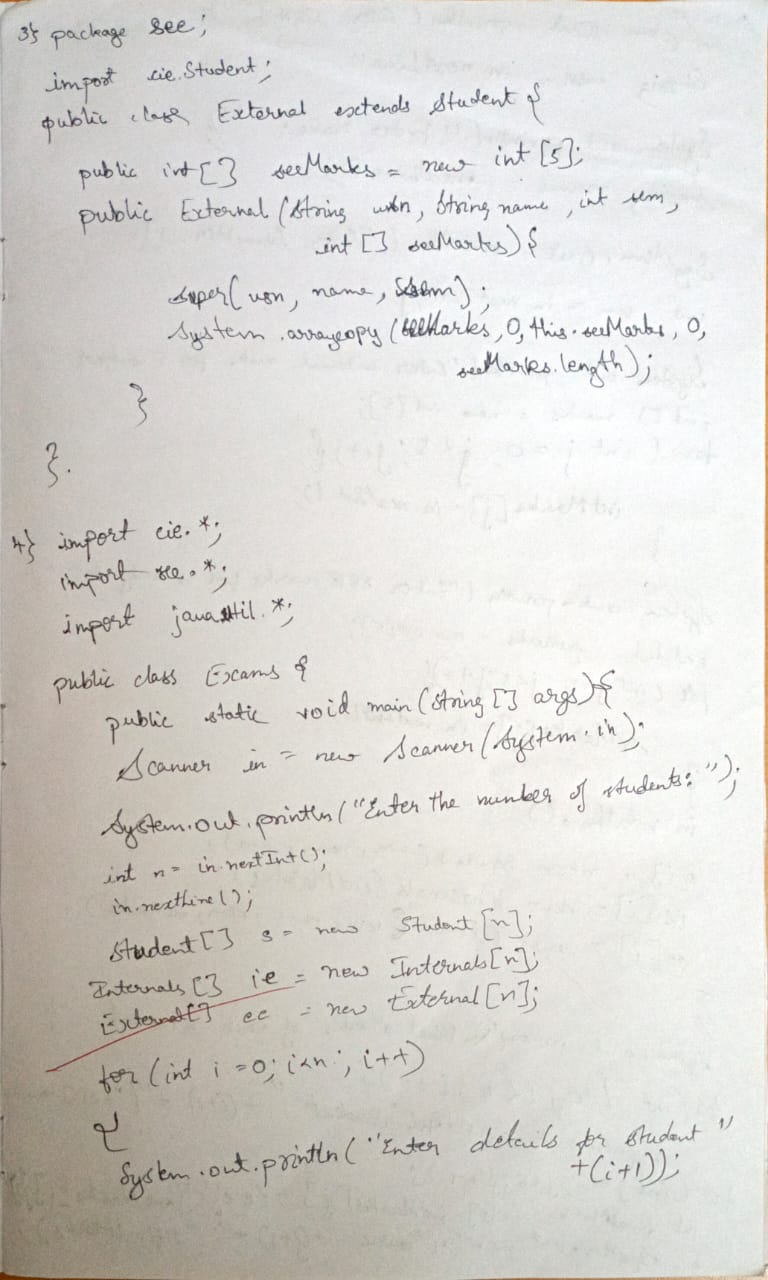 3} package see;
import cie.Student;
public class External extends Student {
public int[] seeMarks = new int [5];
public External (String usn, String name, int sem,
int [] seeMarks) {
super(usn, name, sem);
System.arraycopy (seeMarks, 0, this.seeMarks, 0,
seeMarks.length);
}
}.
4} import cie.*;
import see.*;
import java.util.*;
public class Exams {
public static void main (String [] args) {
Scanner in = new Scanner (System.in);
System.out.println ("Enter the number of students: ");
int n = in.nextInt();
in.nextLine();
Student [] s = new Student [n];
Internals [] ie = new Internals [n];
External [] ee = new External [n];
for (int i = 0; i<n; i++)
{
System.out.println ("Enter details for student "
+(i+1));